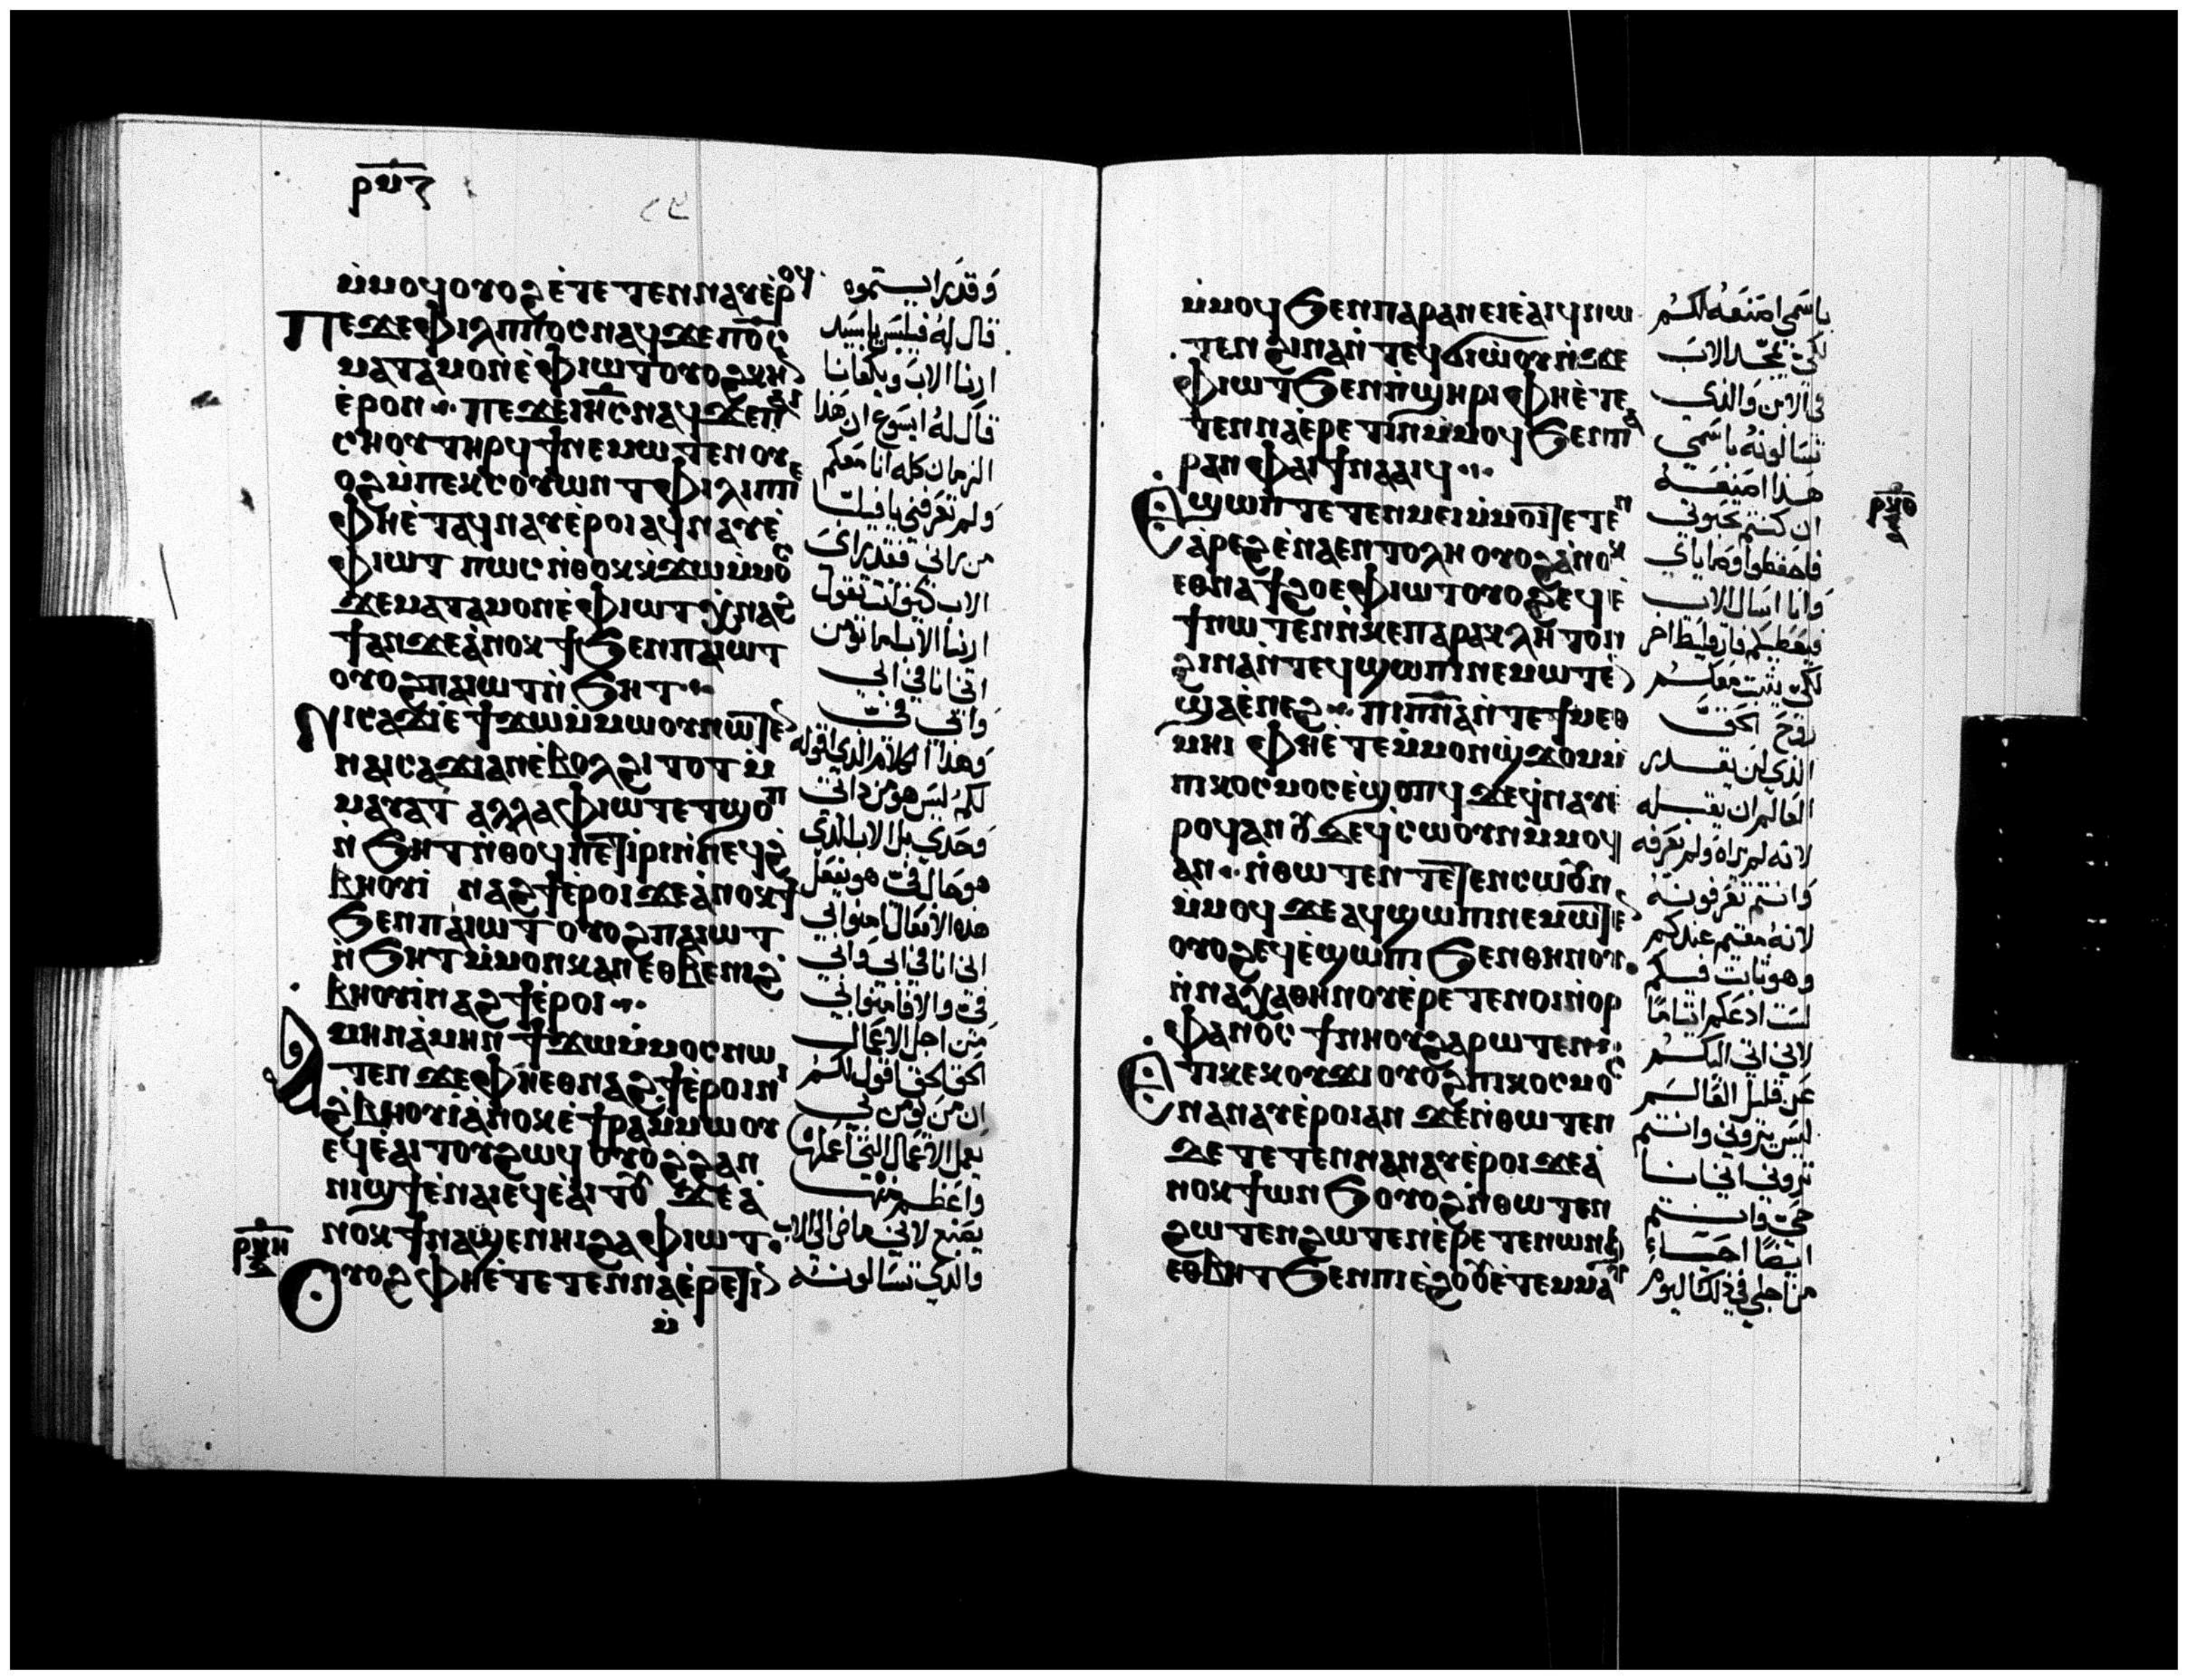 ⲣⲙⲍ
ⲙ̇ⲙⲟϥ ⲟⲩⲟϩ ⲉ̇ⲧⲉⲧⲉⲛⲛⲁⲩ ⲉ̇ⲣⲟϥ
ⲡⲉϫⲉ ⲫⲓⲗⲓⲡⲡⲟⲥ ⲛⲁϥ ϫⲉ ⲡⲟ̅ⲥ̅
ⲙⲁⲧⲁⲙⲟⲛ ⲉ̇ⲫⲓⲱⲧ ⲟⲩⲟϩ ⲕⲏⲛ
ⲉ̇ⲣⲟⲛ ⲡⲉϫⲉ ⲓⲏ̅ⲥ̅ ⲛⲁϥ ϫⲉ ⲡⲁⲓ
ⲥⲏⲟⲩ ⲧⲏⲣϥ ϯⲛⲉⲙⲱⲧⲉⲛ ⲟⲩ
ⲟϩ ⲙ̇ⲡⲉⲕⲥⲟⲩⲱⲛⲧ ⲫⲓⲗⲓⲡⲡⲉ
ⲫⲏ ⲉ̇ⲧⲁϥⲛⲁⲩ ⲉ̇ⲣⲟⲓ ⲁϥⲛⲁⲩ ⲉ̇
ⲫⲓⲱⲧ ⲡⲱⲥ ⲛ̇ⲑⲟⲕ ⲕ̇ϫⲱ ⲙ̇ⲙⲟⲥ
ϫⲉ ⲙⲁⲧⲁⲙⲟⲛ ⲉ̇ⲫⲓⲱⲧ ⲭ̇ⲛⲁϩ
ϯ ⲁⲛ ϫⲉ ⲁ̇ⲛⲟⲕ ϯϧⲉⲛ ⲡⲁⲓⲱⲧ
ⲟⲩⲟϩ ⲡⲁⲓⲱⲧ ⲛ̇ϧⲏⲧ
ⲛⲓⲥⲁϫⲓ ⲉ̇ϯϫⲱ ⲙ̇ⲙⲱⲟⲩ ⲛⲱⲧⲉⲛ
ⲛⲁⲓⲥⲁϫⲓ ⲁⲛ ⲉ̇ⲃⲟⲗ ϩⲓⲧⲟⲧ ⲙ̇
ⲙⲁⲩⲁⲧ ⲁⲗⲗⲁ ⲫⲓⲱⲧ ⲉⲧϣⲟⲡ
ⲛ̇ϧⲏⲧ ⲛ̇ⲑⲟϥ ⲡⲉⲧⲓⲣⲓ ⲛ̇ⲛⲉϥϩ
ⲃⲏⲟⲩⲓ̇ ⲛⲁϩϯ ⲉ̇ⲣⲟⲓ ϫⲉ ⲁ̇ⲛⲟⲕ ϯ
ϧⲉⲛ ⲡⲁⲓⲱⲧ ⲟⲩⲟϩ ⲡⲁⲓⲱⲧ
ⲛ̇ϧⲏⲧ ⲙ̇ⲙⲟⲛ ⲕⲁⲛ ⲉⲑⲃⲉ ⲛⲓϩ
ⲃⲏⲟⲩⲓ̇ ⲛⲁϩϯ ⲉ̇ⲣⲟⲓ
ⲁⲙⲏⲛ ⲁ̇ⲙⲏⲛ ϯϫⲱ ⲙ̇ⲙⲟⲥ ⲛⲱ
ⲧⲉⲛ ϫⲉ ⲫⲏ ⲉⲑⲛⲁϩϯ ⲉ̇ⲣⲟⲓ ⲛⲓ
ϩⲃⲏⲟⲩⲓ̇ ⲁ̇ⲛⲟⲕ ⲉ̇ϯⲣⲁ ⲙ̇ⲙⲱⲟⲩ
ⲉϥⲉ̇ⲁⲓⲧⲟⲩ ϩⲱϥ ⲟⲩⲟϩ ϩⲁⲛ
ⲛⲓϣϯ ⲉ̇ⲛⲁⲓ ⲉϥⲉ̇ⲁⲓⲧⲟⲩ ϫⲉ ⲁ̇
ⲛⲟⲕ ϯⲛⲁϣⲉ ⲛⲏⲓ ϩⲁ ⲫⲓⲱⲧ
ⲣⲙⲏ
ⲟⲩⲟϩ ⲫⲏ ⲉ̇ⲧⲉⲧⲉⲛⲛⲁⲉ̇ⲣⲉⲧⲓⲛ
ⲙ̇
وقد رايتموه
قال له فيلبس يا سيد
ارنا الاب ويكفانا
قال له ايسوع ان هذا
الزمان كله انا معكم
ولم تعرفني يا فيلبس
من راني فقد راى
الاب كيف انت تقول
ارنا الاب اما تؤمن
اني انا في ابي
وابي في
وهذا الكلام الذي اقوله
لكم ليس هو من ذاتي
وحدي بل الاب الذي
هو حال في هو يفعل
هذه الافعال امنوا بي
اني انا في ابي وابي
في والا فامنوا بي
من اجل الاعمال
الحق الحق اقول لكم
ان من يؤمن بي
يعمل الاعمال التي اعملها
واعظم منها
يصنع لاني ماض الى الاب
والذي تسالونه
ⲙ̇ⲙⲟϥ ϧⲉⲛ ⲡⲁⲣⲁⲛ ⲉⲓⲉ̇ⲁⲓϥ ⲛⲱ
ⲧⲉⲛ ϩⲓⲛⲁ ⲛ̇ⲧⲉϥϭⲓⲱ̇ⲟⲩ ⲛ̇ϫⲉ
ⲫⲓⲱⲧ ϧⲉⲛ ⲡ̇ϣⲏⲣⲓ ⲫⲏ ⲉ̇ⲧⲉ
ⲧⲉⲛⲛⲁⲉ̇ⲣⲉⲧⲓⲛ ⲙ̇ⲙⲟϥ ϧⲉⲛ ⲡⲁ
ⲣⲁⲛ ⲫⲁⲓ ϯⲛⲁⲁⲓϥ
ⲉϣⲱⲡ ⲧⲉⲧⲉⲛⲙⲉⲓ ⲙ̇ⲙⲟⲓ ⲉⲧⲉⲛ
ⲁ̇ⲣⲉϩ ⲉ̇ⲛⲁⲉⲛⲧⲟⲗⲏ ⲟⲩⲟϩ ⲁ̇ⲛⲟⲕ
ⲉⲑⲛⲁϯϩⲟ ⲉ̇ⲫⲓⲱⲧ ⲟⲩⲟϩ ⲉϥⲉ̇
ϯ ⲛⲱⲧⲉⲛ ⲛ̇ⲕⲉⲡⲁⲣⲁⲕⲗⲏⲧⲟⲛ
ϩⲓⲛⲁ ⲛ̇ⲧⲉϥϣⲱⲡⲓ ⲛⲉⲙⲱⲧⲉⲛ
ϣⲁ ⲉ̇ⲛⲉϩ ⲡⲓⲡ̅ⲛ̅ⲁ̅ ⲛ̇ⲧⲉ ϯⲙⲉⲑ
ⲙⲏⲓ ⲫⲏ ⲉ̇ⲧⲉ ⲙ̇ⲙⲟⲛ ϣ̇ϫⲟⲙ ⲙ̇
ⲡⲓⲕⲟⲥⲙⲟⲥ ⲉ̇ϣⲟⲡϥ ϫⲉ ϥ̇ⲛⲁⲩ ⲉ̇
ⲣⲟϥ ⲁⲛ ⲟⲩⲇⲉ ϥ̇ⲥⲱⲟⲩⲛ ⲙ̇ⲙⲟϥ
ⲁⲛ ⲛ̇ⲑⲱⲧⲉⲛ ⲧⲉⲧⲉⲛⲥⲱⲟⲩⲛ
ⲙ̇ⲙⲟϥ ϫⲉ ⲁϥϣⲱⲡ ⲛⲉⲙⲱⲧⲉⲛ
ⲟⲩⲟϩ ⲉϥⲉ̇ϣⲱⲡⲓ ϧⲉⲛ ⲑⲏⲛⲟⲩ
ⲛ̇ⲛⲁⲭⲁ ⲑⲏⲛⲟⲩ ⲉ̇ⲣⲉⲧⲉⲛⲟⲓ ⲛ̇ⲟⲣ
ⲫⲁⲛⲟⲥ ϯⲛⲏⲟⲩ ϩⲁⲣⲱⲧⲉⲛ
ⲣⲙⲑ
ⲉⲧⲓ ⲕⲉⲕⲟⲩϫⲓ ⲟⲩⲟϩ ⲡⲓⲕⲟⲥⲙⲟⲥ
ⲛⲁⲛⲁⲩ ⲉ̇ⲣⲟⲓ ⲁⲛ ϫⲉ ⲛ̇ⲑⲱⲧⲉⲛ
ⲇⲉ ⲧⲉⲧⲉⲛⲛⲁⲛⲁⲩ ⲉ̇ⲣⲟⲓ ϫⲉ ⲁ̇
ⲛⲟⲕ ϯⲱⲛϧ ⲟⲩⲟϩ ⲛ̇ⲑⲱⲧⲉⲛ
ϩⲱⲧⲉⲛ ϩⲱⲧⲉⲛ ⲉ̇ⲣⲉⲧⲉⲛⲱⲛϧ
ⲉⲑⲃⲏⲧ ϧⲉⲛ ⲡⲓⲉ̇ϩⲟⲟⲩ ⲉ̇ⲧⲉⲙⲙⲁⲩ
باسمي اصنعه لكم
لكي يمجد الاب
في الابن والذي
تسالونه باسمي
هذا اصنعه
ان كنتم تحبوني
فاحفظوا وصاياي
وانا اسال الاب
فيعطيكم فارقليط اخر
لكي يثبت معكم
روح الحق
الذي لن يقدر
العالم ان يقبله
لانه لم يراه ولم يعرفه
وانتم تعرفونه
لانه مقيم عندكم
وهو ثابت فيكم
لست ادعكم ايتاما
لاني اتي اليكم
عن قليل العالم
ليس يروني وانتم
تروني اني انا
حي وانتم
ايضا احياء
من اجلي في ذلك اليوم